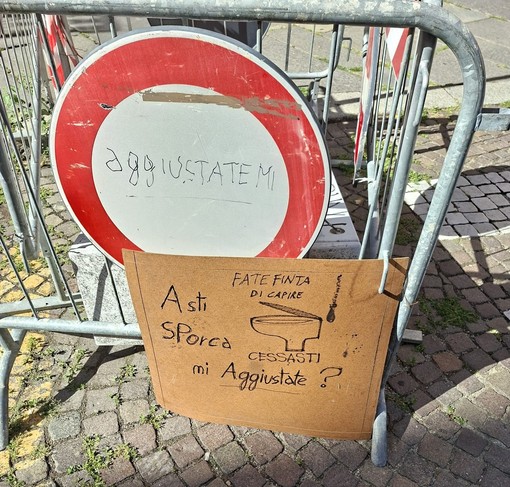 aggiUSTATEMI
FATE FINTA
DI CAPIRE
Asti
SPorca
CESSASTI
mi Aggiustate ?